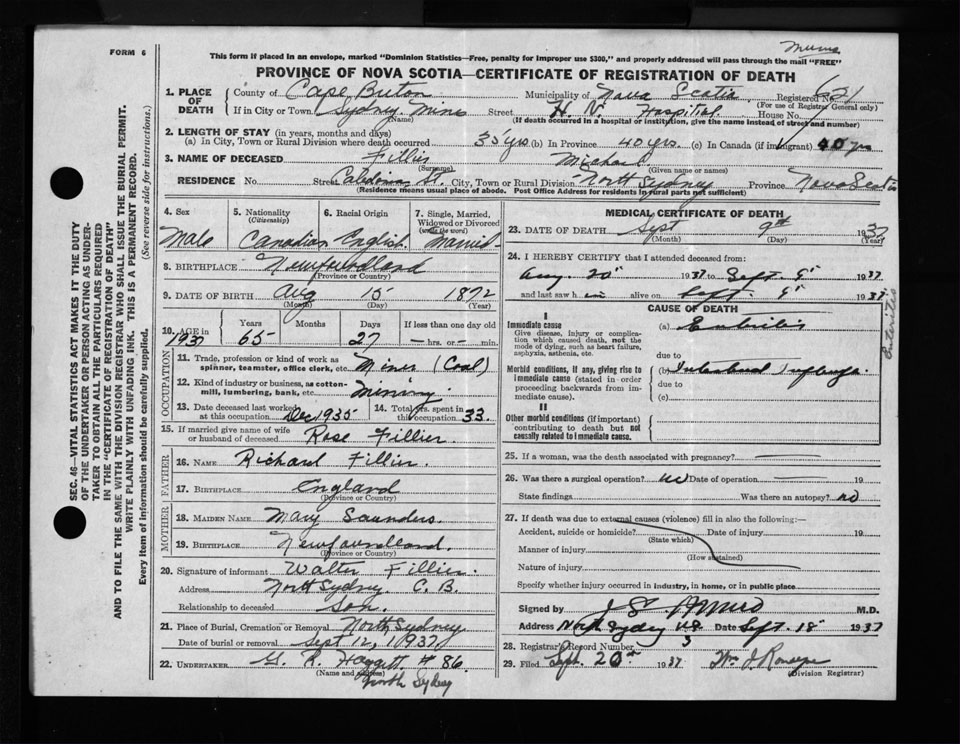 FORM 6
Mums
This form if placed in an envelope, marked "Dominion Statistics—Free, penalty for improper use $300," and properly addressed will pass through the mail "FREE"
PROVINCE OF NOVA SCOTIA—CERTIFICATE OF REGISTRATION OF DEATH
1. PLACE OF DEATH County of Cape Breton Municipality of Nova Scotia Registered No. 621
(For use of Registrar General only)
If in City or Town Sydney Mines (Name) Street H. V. Hospital. House No.
(If death occurred in a hospital or institution, give the name instead of street and number)
2. LENGTH OF STAY (in years, months and days)
(a) In City, Town or Rural Division where death occurred 35 yrs (b) In Province 40 yrs. (c) In Canada (if immigrant) 40 yrs
3. NAME OF DECEASED Fillier Michael
(Surname) (Given name or names)
RESIDENCE No. Street Caledonia St. City, Town or Rural Division North Sydney Province Nova Scotia
(Residence means usual place of abode. Post Office Address for Residents in rural parts not sufficient)
SEC. 46—VITAL STATISTICS ACT MAKES IT THE DUTY
OF THE UNDERTAKER OR PERSON ACTING AS UNDER-
TAKER TO OBTAIN ALL THE PARTICULARS REQUIRED
IN THE "CERTIFICATE OF REGISTRATION OF DEATH"
AND TO FILE THE SAME WITH THE DIVISION REGISTRAR WHO SHALL ISSUE THE BURIAL PERMIT.
WRITE PLAINLY WITH UNFADING INK. THIS IS A PERMANENT RECORD.
Every item of information should be carefully supplied. (See reverse side for instructions.)
4. Sex 5. Nationality (Citizenship) 6. Racial Origin 7. Single, Married, Widowed or Divorced (write the word)
Male Canadian English Married
8. BIRTHPLACE Newfoundland
(Province or Country)
9. DATE OF BIRTH Aug 15 1872
(Month) (Day) (Year)
10. AGE in Years Months Days If less than one day old
1937 65 27 — hrs. or — min.
OCCUPATION
11. Trade, profession or kind of work as spinner, teamster, office clerk, etc. Miner (Coal)
12. Kind of industry or business, as cotton-mill, lumbering, bank, etc. Mining
13. Date deceased last worked at this occupation Dec 1935 14. Total yrs. spent in this occupation 33.
15. If married give name of wife or husband of deceased Rose Fillier
FATHER
16. NAME Richard Fillier.
17. BIRTHPLACE England
(Province or Country)
MOTHER
18. MAIDEN NAME Mary Saunders.
19. BIRTHPLACE Newfoundland.
(Province or Country)
20. Signature of informant Walter Fillier.
Address North Sydney C. B.
Relationship to deceased Son.
21. Place of Burial, Cremation or Removal North Sydney
Date of burial or removal Sept 12, 1937
22. UNDERTAKER G. R. Haggett # 86.
(Name and address)
North Sydney
MEDICAL CERTIFICATE OF DEATH
23. DATE OF DEATH Sept 9th 1937
(Month) (Day) (Year)
24. I HEREBY CERTIFY that I attended deceased from:
Aug. 20" 1937 to Sept. 9" 1937
and last saw him alive on Sept. 9" 1937
CAUSE OF DEATH
I
Immediate cause
Give disease, injury or complication which caused death, not the mode of dying, such as heart failure, asphyxia, asthenia, etc.
(a) Enteritis
Enteritis
due to
Morbid conditions, if any, giving rise to immediate cause (stated in order proceeding backwards from immediate cause).
(b) Intestinal Influenza.
due to
(c)
II
Other morbid conditions (if important) contributing to death but not causally related to immediate cause.
25. If a woman, was the death associated with pregnancy? —
26. Was there a surgical operation? no Date of operation — 19
State findings Was there an autopsy? no
27. If death was due to external causes (violence) fill in also the following:—
Accident, suicide or homicide? Date of injury 19
(State which)
Manner of injury
(How sustained)
Nature of injury
Specify whether injury occurred in industry, in home, or in public place
Signed by M.D.
Address North Sydney N.S. Date Sept. 18 1937
28. Registrar's Record Number 3
29. Filed Sept. 20th 1937 Wm J
(Division Registrar)